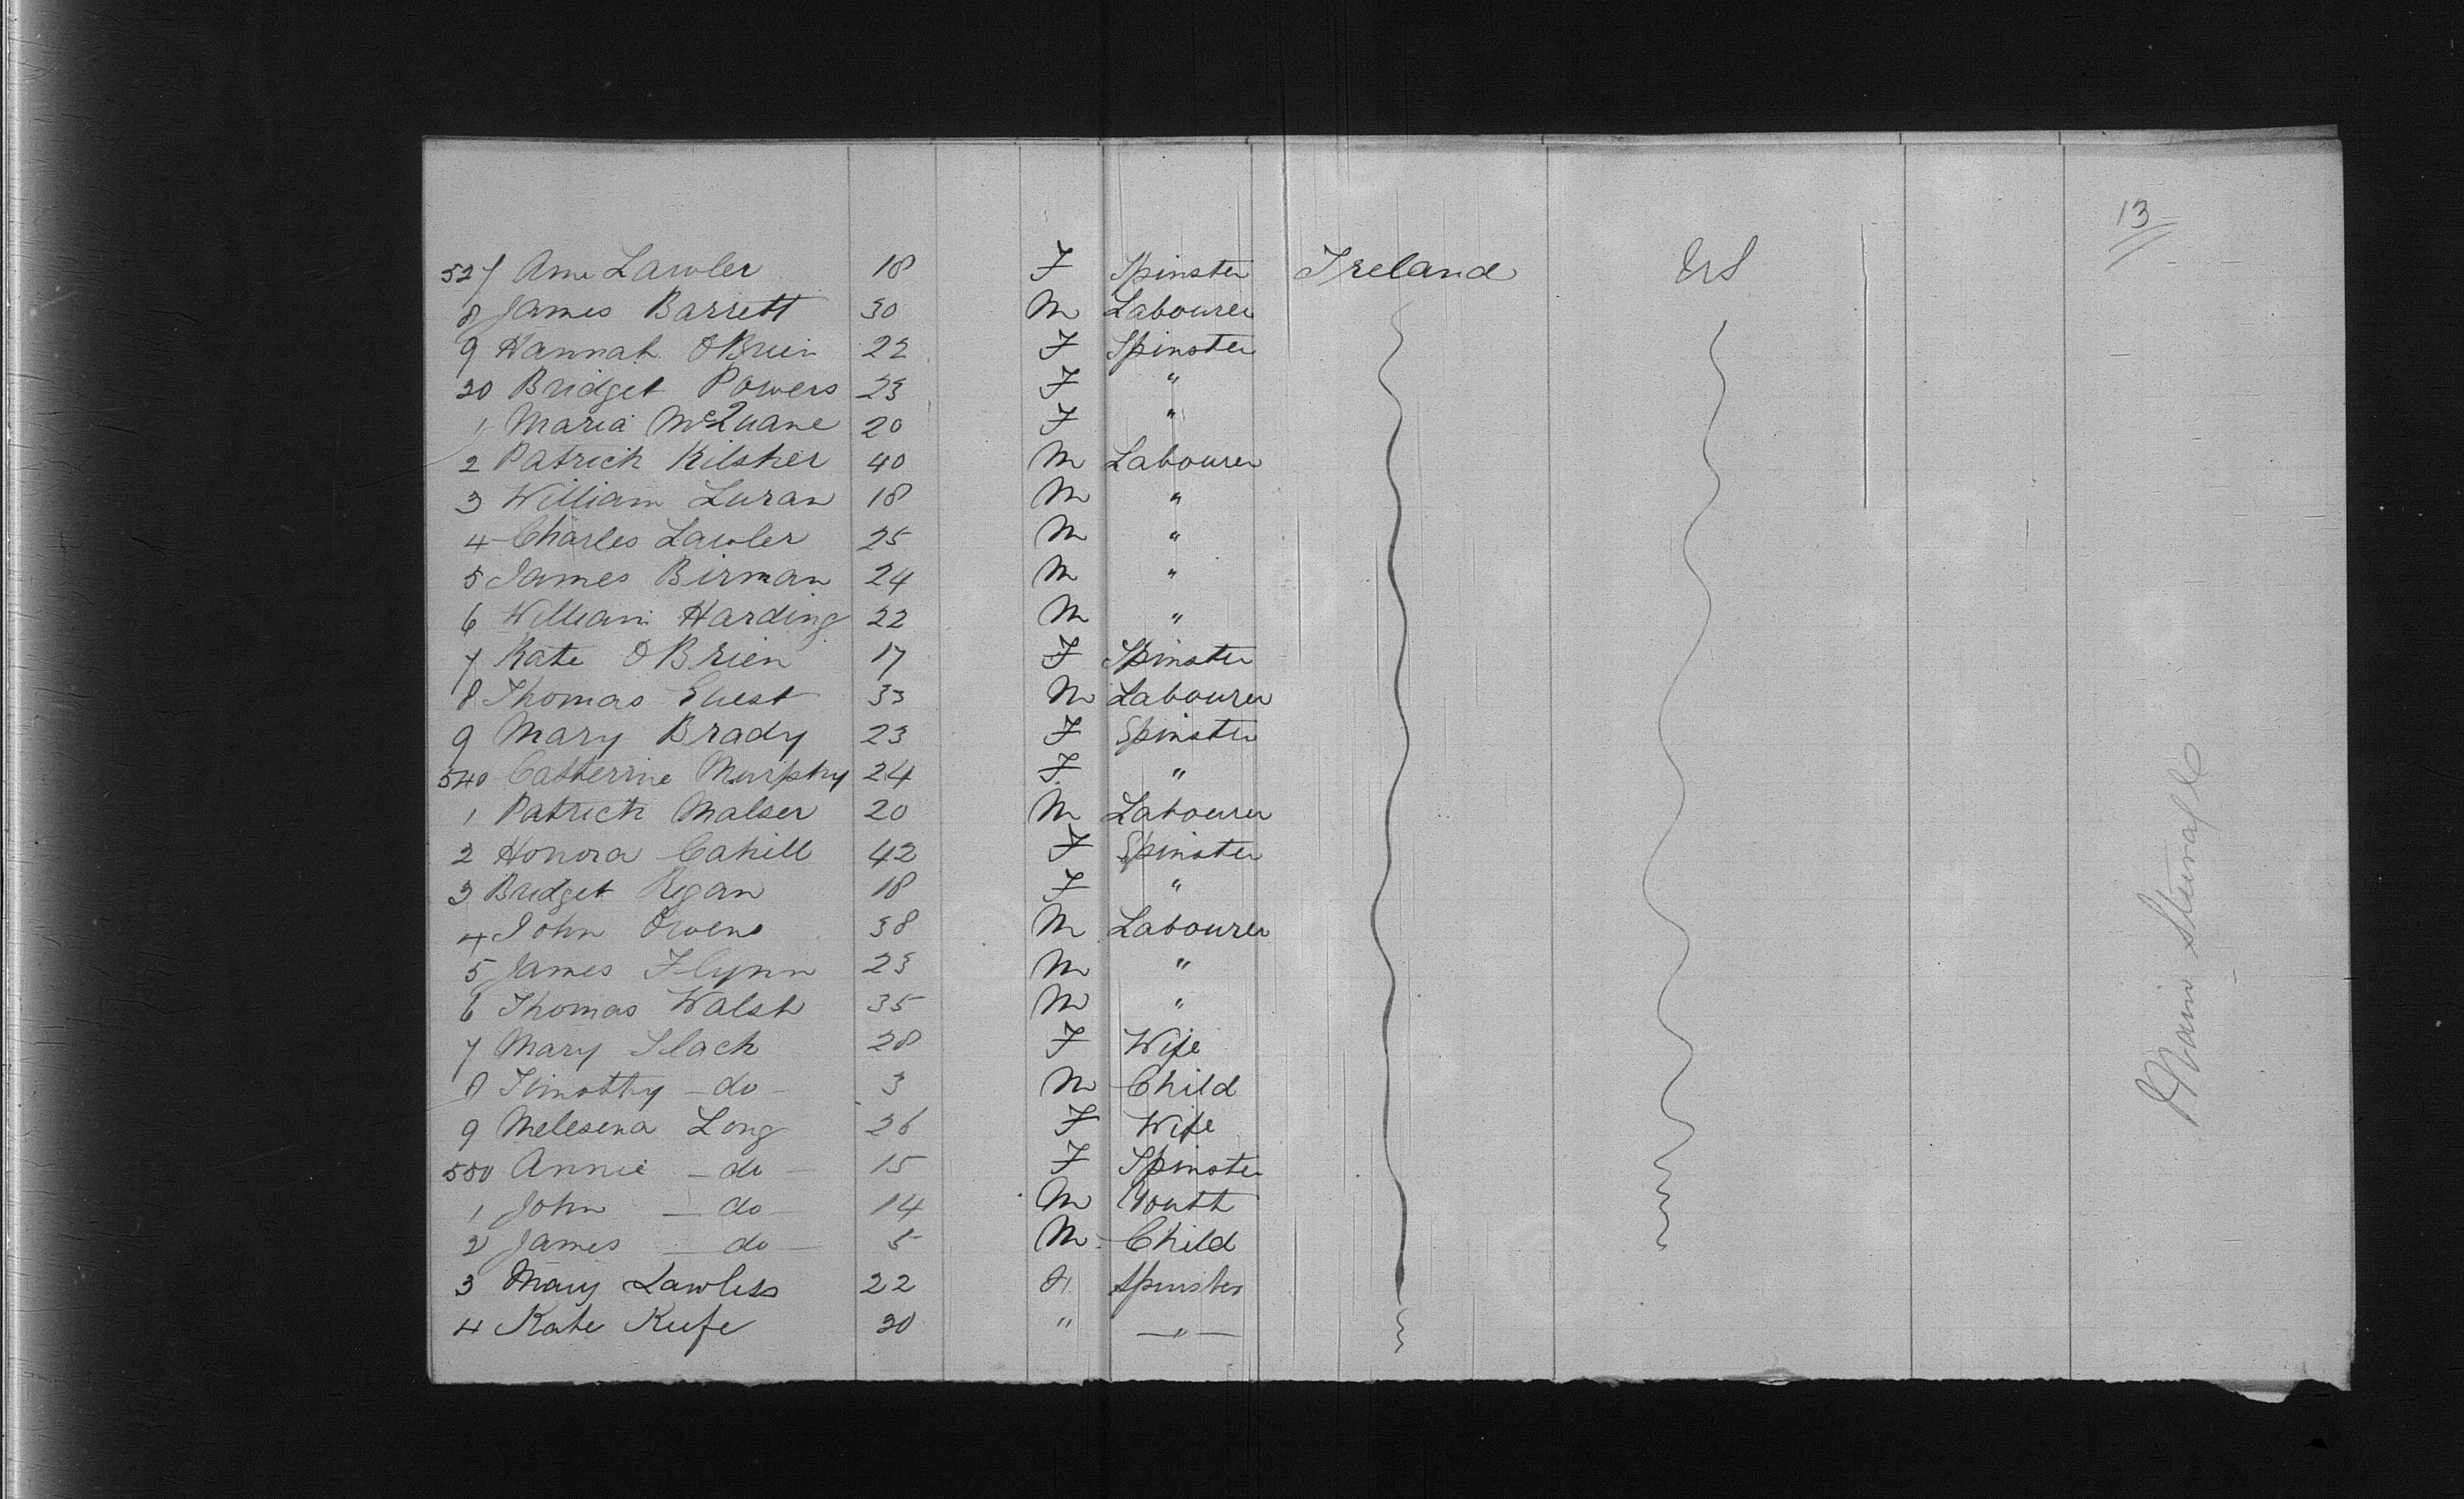 13
527 Ann Lawler 18 F Spinster Ireland US
8 James Barrett 30 M Labourer
9 Hannah OBrien 22 F Spinster
30 Bridget Powers 23 F "
1 Maria McQuane 20 F "
2 Patrick Kilsher 40 M Labourer
3 William Luran 18 M "
4 Charles Lawler 25 M "
5 James Birman 24 M "
6 William Harding 22 M "
7 Kate OBrien 17 F Spinster
8 Thomas Guest 33 M Labourer
9 Mary Brady 23 F Spinster
540 Catherine Murphy 24 F "
1 Patrick Malser 20 M Labourer
2 Honora Cahill 42 F Spinster
3 Bridget Regan 18 F "
4 John Owens 38 M Labourer
5 James Flynn 23 M "
6 Thomas Walsh 35 M "
7 Mary Slack 28 F Wife
8 Timothy - do - 3 M Child
9 Melesina Long 26 F Wife
550 Annie - do - 15 F Spinster
1 John - do - 14 M Youth
2 James - do - 5 M Child
3 Mary Lawless 22 F. Spinster
4 Kate Kufe 30 " - " -
Main Steerage